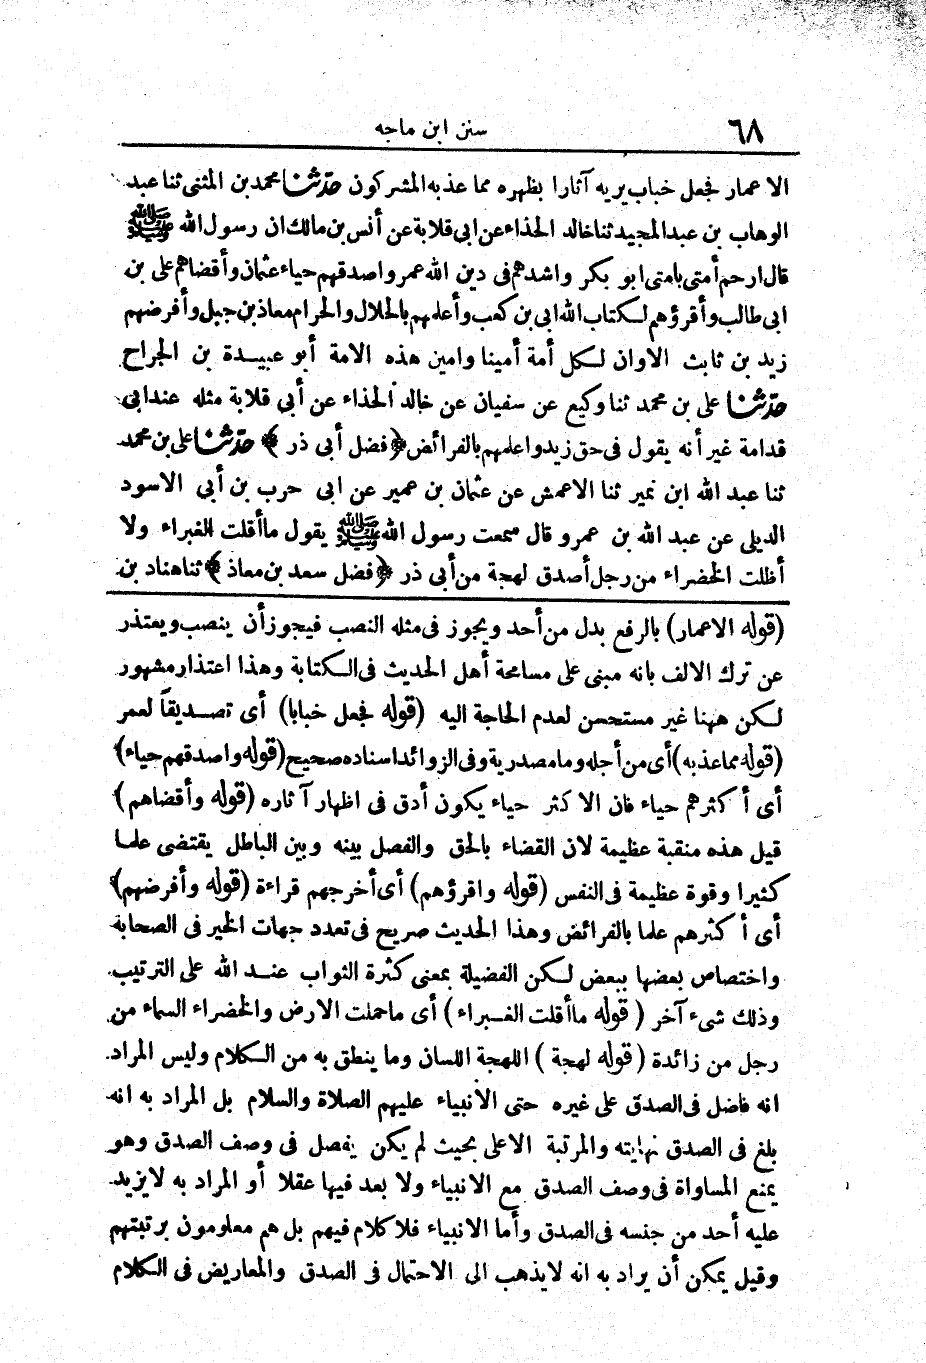 ٦٨
سنن ابن ماجه
الاعمار فجعل خباب يريه آثارا بظهره مما عذبه المشركون حدثنا محمد بن المثنى ثنا عبد
الوهاب بن عبد المجيد ثنا خالد الحذاء عن ابى قلابة عن أنس بن مالك ان رسول الله ﷺ
قال ارحم أمتى بامتى ابو بكر واشدهم فى دين الله عمر واصدقهم حياء عثمان وأقضاهم على بن
ابى طالب وأقرؤهم لكتاب الله ابى بن كعب وأعلمهم بالحلال والحرام معاذ بن جبل وأفرضهم
زيد بن ثابت الاوان لكل أمة أمينا وامين هذه الامة أبو عبيدة بن الجراح
حدثنا على بن محمد ثنا وكيع عن سفيان عن خالد الحذاء عن أبي قلابة مثله عند ابى
قدامة غير أنه يقول فى حق زيد واعلمهم بالفرائض ﴿ فضل أبى ذر ﴾ حدثنا على بن محمد
ثنا عبد الله ابن نمير ثنا الاعمش عن عثمان بن عمير عن ابى حرب بن أبي الاسود
الديلى عن عبد الله بن عمرو قال سمعت رسول الله ﷺ يقول ما أقلت الغبراء ولا
أظلت الخضراء من رجل أصدق لهجة من أبي ذر ﴿ فضل سعد بن معاذ ﴾ ثنا هناد بن
(قوله الاعمار) بالرفع بدل من أحد ويجوز فى مثله النصب فيجوز أن ينصب ويعتذر
عن ترك الالف بانه مبنى على مسامحة أهل الحديث فى الكتابة وهذا اعتذار مشهور
لكن ههنا غير مستحسن لعدم الحاجة اليه (قوله فجعل خبابا) أى تصديقاً لعمر
(قوله مما عذبه) أى من أجله وما مصدرية وفى الزوائد اسناده صحيح (قوله واصدقهم حياء)
أى أكثرهم حياء فان الاكثر حياء يكون أدق فى اظهار آثاره (قوله وأقضاهم)
قيل هذه منقبة عظيمة لان القضاء بالحق والفصل بينه وبين الباطل يقتضى علما
كثيرا وقوة عظيمة فى النفس (قوله واقرؤهم) أى أخرجهم قراءة (قوله وأفرضهم)
أى أكثرهم علما بالفرائض وهذا الحديث صريح فى تعدد جهات الخير فى الصحابة
واختصاص بعضها ببعض لكن الفضيلة بمعنى كثرة الثواب عند الله على الترتيب
وذلك شىء آخر (قوله ما أقلت الغبراء) أى ما حملت الارض والخضراء السماء من
رجل من زائدة (قوله لهجة) اللهجة اللسان وما ينطق به من الكلام وليس المراد
انه فاضل فى الصدق على غيره حتى الانبياء عليهم الصلاة والسلام بل المراد به انه
بلغ فى الصدق نهايته والمرتبة الاعلى بحيث لم يكن يفصل فى وصف الصدق وهو
يمنع المساواة فى وصف الصدق مع الانبياء ولا بعد فيها عقلا أو المراد به لا يزيد
عليه أحد من جنسه فى الصدق وأما الانبياء فلا كلام فيهم بل هم معلومون برتبتهم
وقيل يمكن أن يراد به انه لا يذهب الى الاحتمال فى الصدق والمعاريض فى الكلام